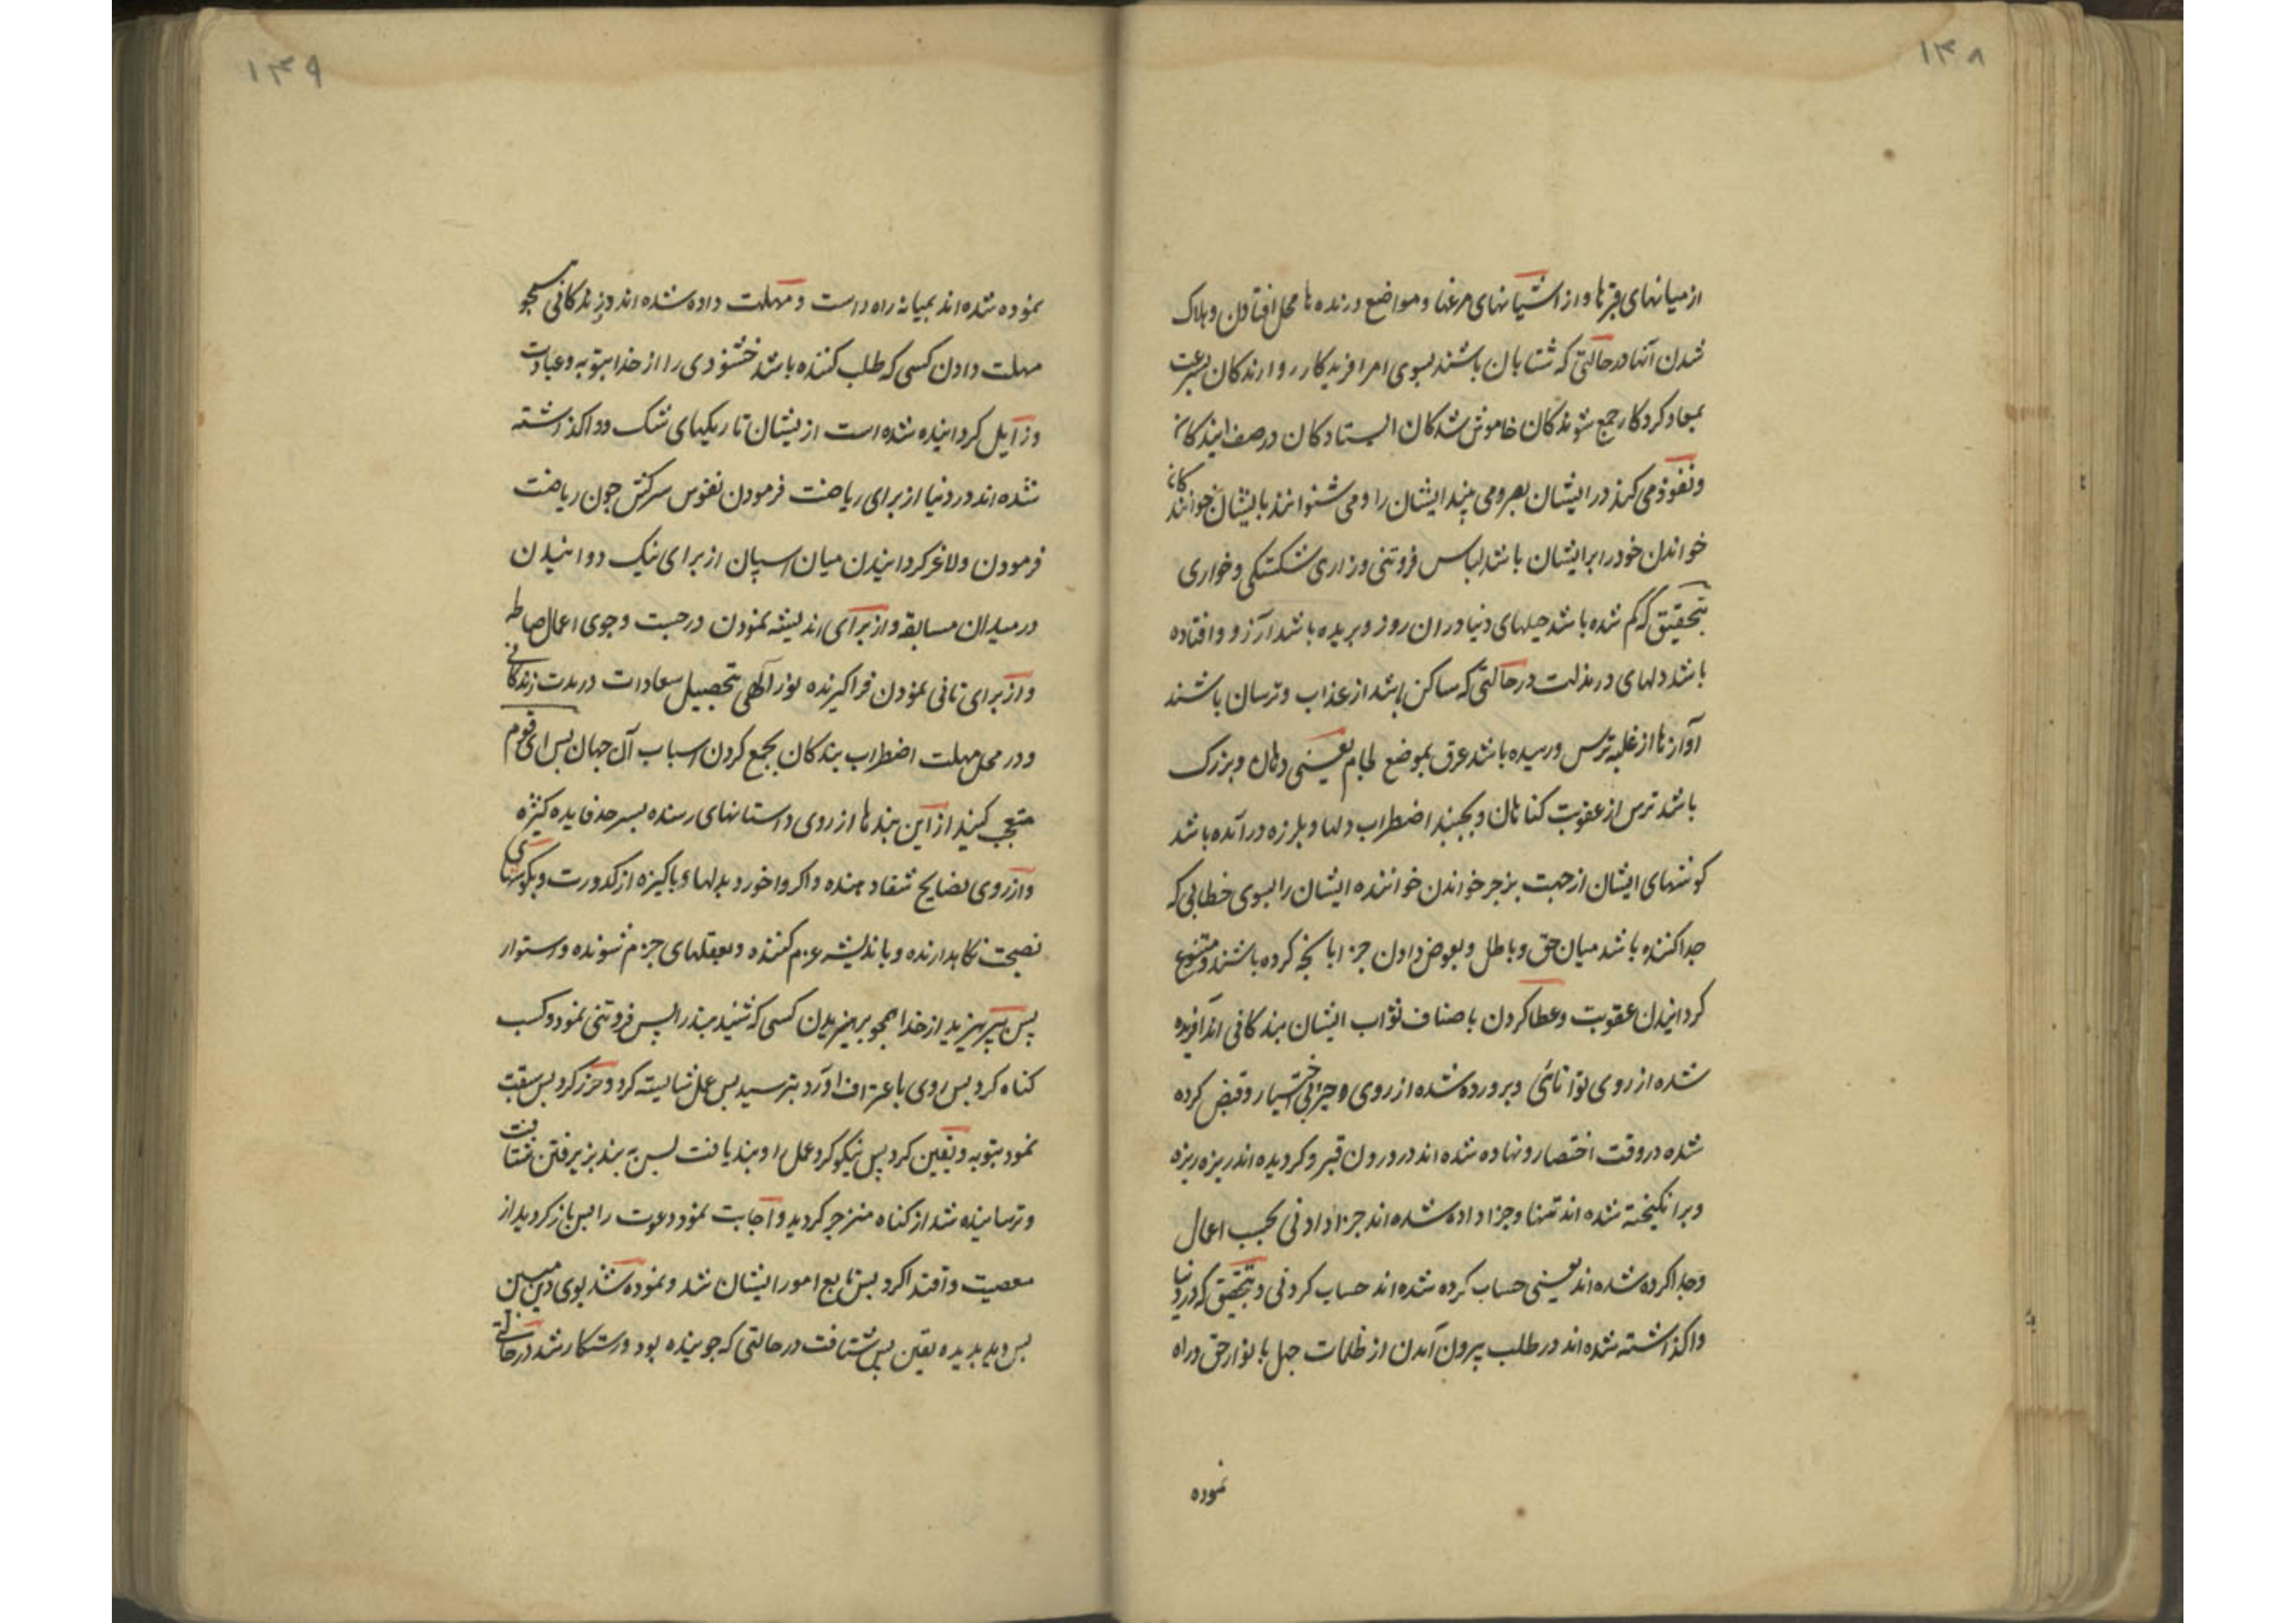 ١٣٨
از میانهای قبرها و از آشیانهای مرغها و مواضع درنده ها محل افتادن و هلاک
شدن آنها در حالتی که شتابان باشند بسوی امر افریدکار روارندکان بسرعت
بمعاد کردکار جمع شوندکان خاموش شدکان ایستادکان در صف ایندکان
و نفوذ می کند در ایشان بصر و می بیند ایشان را و می شنوانند بایشان خوانندکان
خواندن خود را بر ایشان باشد لباس فروتنی و زاری شکستکی و خواری
بتحقیق که کم شده باشد حیلهای دنیا در ان روز و بریده باشد آرزو و افتاده
باشد دلهای در مذلت در حالتی که ساکن باشد از عذاب و ترسان باشند
آوازها از غلبه ترس و رسیده باشد عرق بموضع لجام یعنی دهان و بزرک
باشد ترس از عقوبت کناهان و بجنبد اضطراب دلها و بلرزه در آمده باشد
کوشهای ایشان از جهت بزجر خواندن خواننده ایشان را بسوی خطابی که
جدا کننده باشد میان حق و باطل و بعوض دادن جزا بانچه کرده باشند و متنوع
کردانیدن عقوبت و عطا کردن باصناف ثواب ایشان بندکانی اند آفریده
شده از روی توانائی و پرورده شده از روی و جبر بی اختیار و قبض کرده
شده در وقت احتضار و نهاده شده اند در درون قبر و کردیده اند ریزه ریزه
و برانکیخته شده اند تنها و جزا داده شده اند جزا دادنی بحسب اعمال
و جدا کرده شده اند یعنی حساب کرده شده اند حساب کردنی و بتحقیق که در دنیا
واکذاشته شده اند در طلب بیرون آمدن از ظلمات جهل بانوار حق و راه
نموده
١٣٩
نموده شده اند بمیانه راه راست و مهلت داده شده اند در زندکانی همچو
مهلت دادن کسی که طلب کننده باشد خشنودی را از خدا بتوبه و عبادت
و زایل کردانیده شده است از یشان تاریکیهای شک و واکذاشته
شده اند در دنیا از برای ریاضت فرمودن نفوس سرکش چون ریاضت
فرمودن و لاغر کردانیدن میان اسپان از برای نیک دوانیدن
در میدان مسابقه و از برای اندیشه نمودن در جست و جوی اعمال صالحه
و از برای تانی نمودن فراکیرنده نور الهی بتحصیل سعادات در مدت زندکانی
و در محل مهلت اضطراب بندکان بجمع کردن اسباب آن جهان پس ای قوم
متعجب کنید از این پندها از روی داستانهای رسنده بسر حد فایده کثیره
و از روی نصایح شفا دهنده واکر واخورد بدلهاء پاکیزه از کدورت و بکوشهای
نصیحت نکاهدارنده و باندیشه عزم کننده و بعقلهای جزم شونده و استوار
پس بپرهیزید از خدا همچو پرهیزیدن کسی که شنید پند را پس فروتنی نمود و کسب
کناه کرد پس روی باعتراف آورد بترسید پس عمل شایسته کرد و حزر کرد پس سبقت
نمود بتوبه و یقین کرد پس نیکو کرد عمل او پند یافت پس به پند پزیرفتن شتافت
و ترسانیده شد از کناه منزجر کردید و اجابت نمود دعوت را پس باز کردید از
معصیت و اقتدا کرد پس تابع امور ایشان شد و نموده شد بوی دین مبین
پس دید بدیده یقین پس شتافت در حالتی که جوینده بود و رستکار شد در حالتی